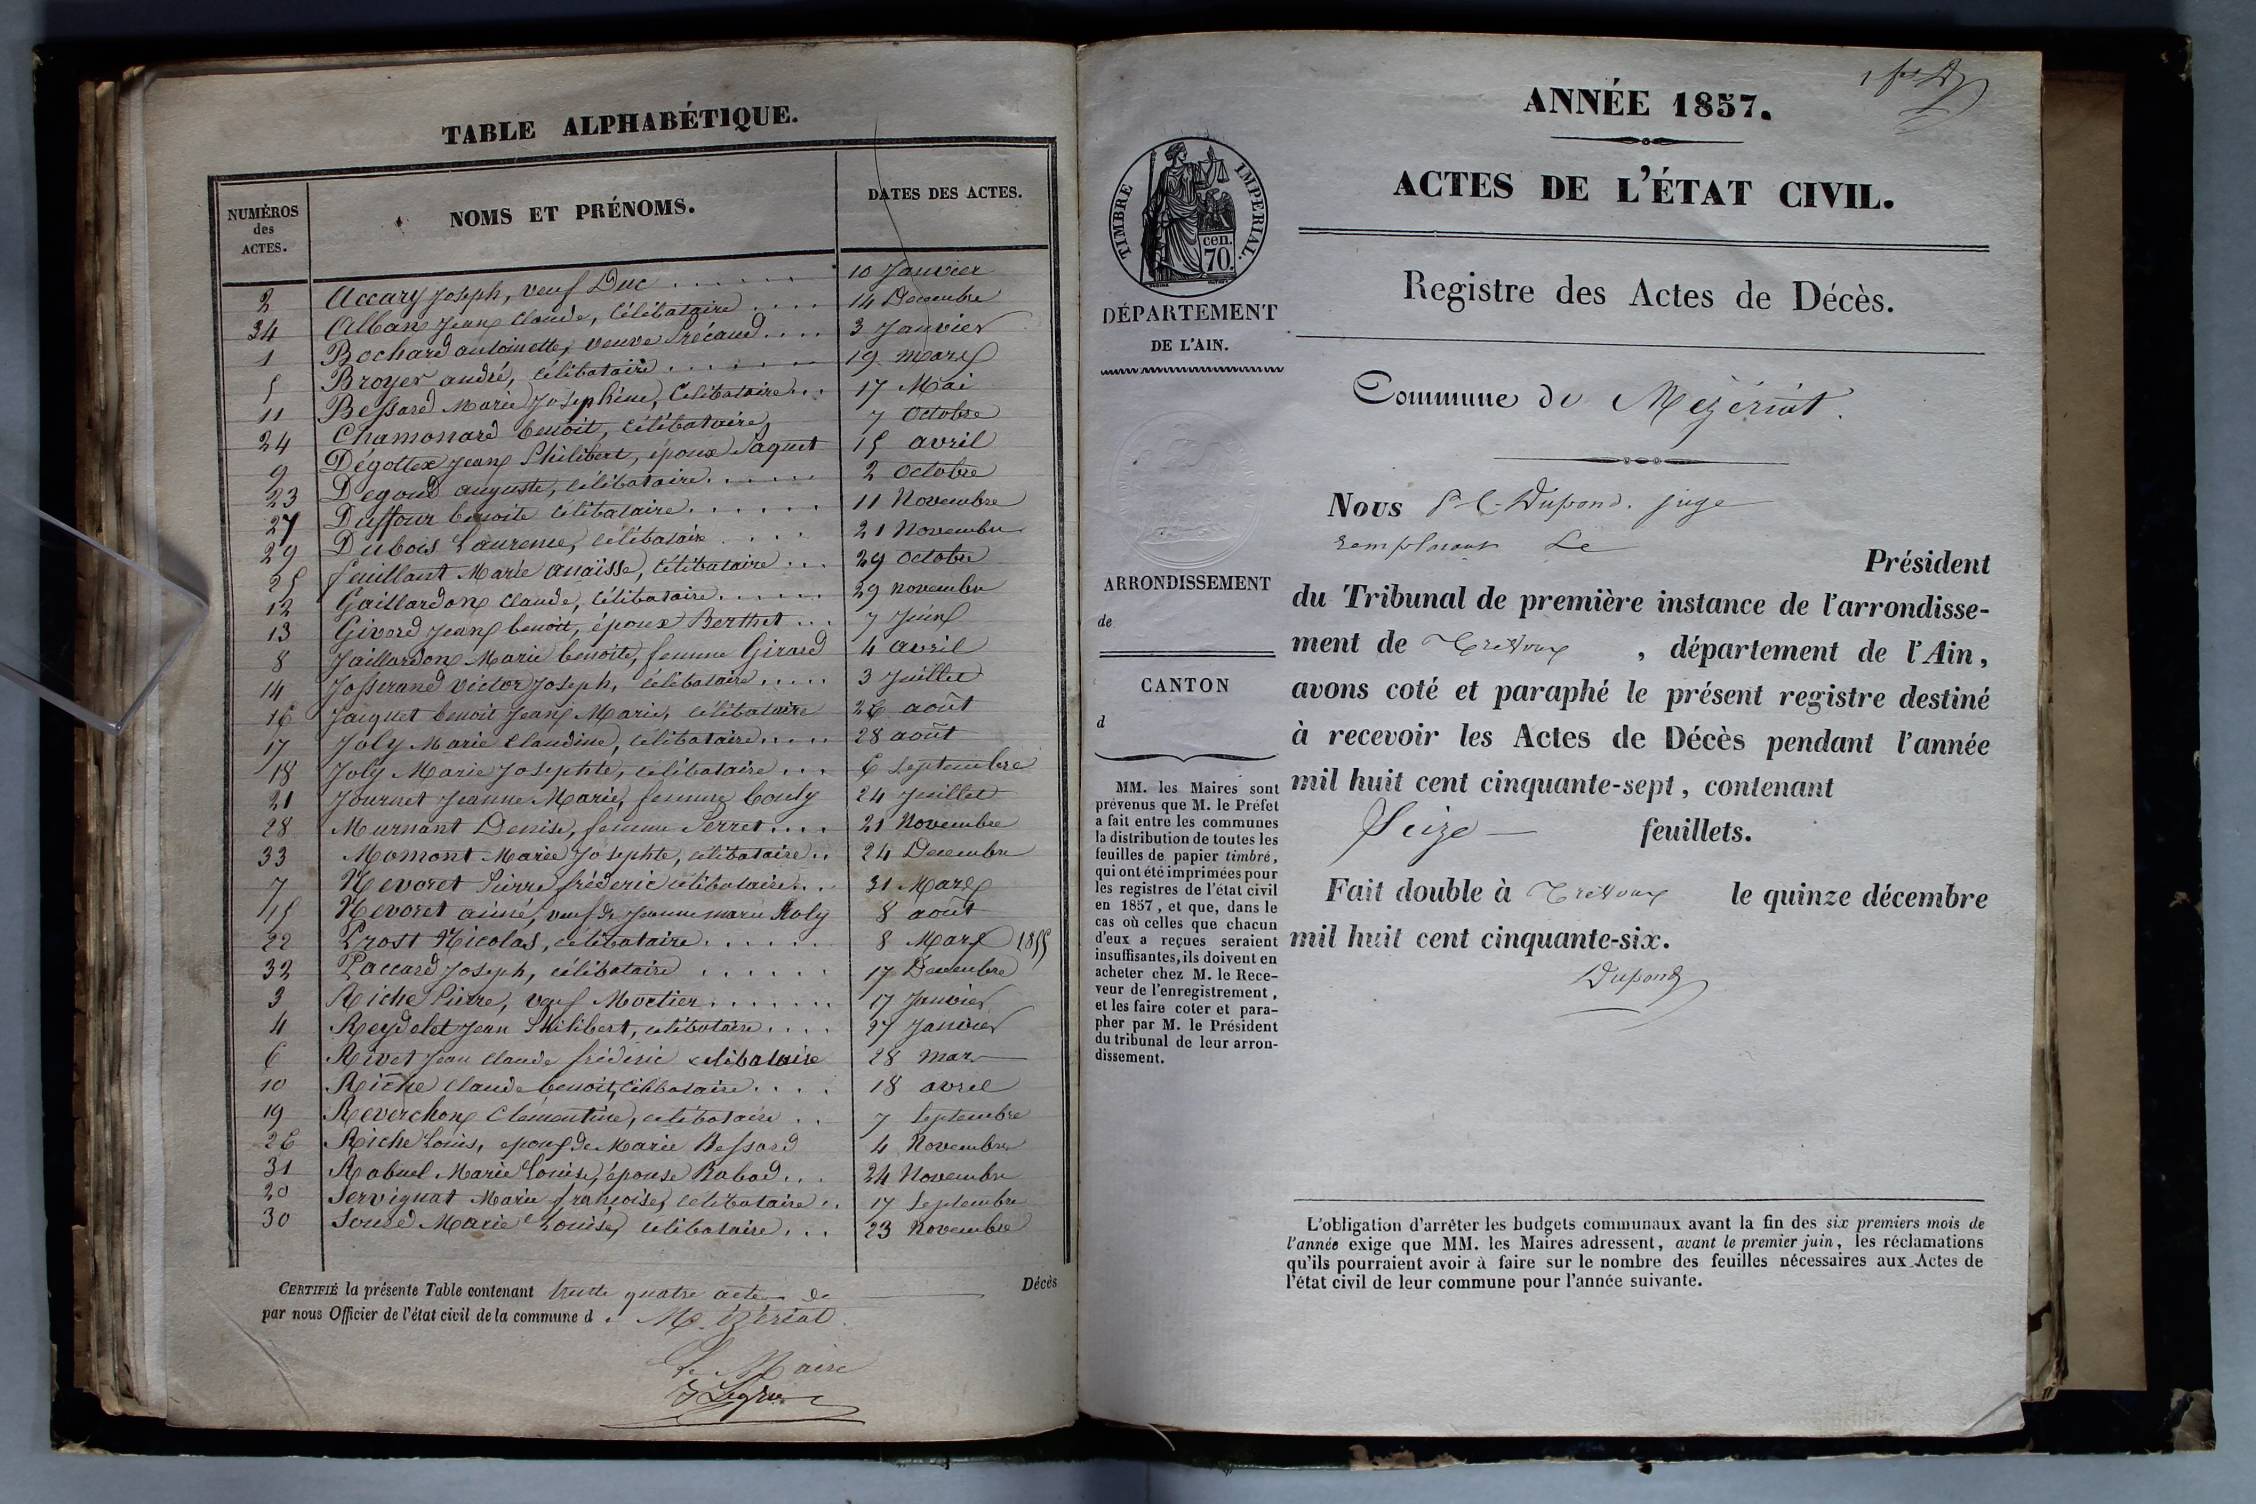 TABLE ALPHABÉTIQUE.
NUMÉROS des ACTES. NOMS ET PRÉNOMS. DATES DES ACTES.
2 Accary Joseph, veuf Duc 10 Janvier
34 Alban Jean Claude, célibataire 14 Decembre
1 Bochard antoinette, veuve Précaud 3 Janvier
5 Broyer andré, célibataire 19 Mars
11 Bessard Marie Joséphine, Célibataire 17 Mai
24 Chamonard benoit, célibataire 7 Octobre
9 Dégottex Jean Philibert, époux Paquet 15 avril
23 Degoud auguste, célibataire 2 Octobre
27 Duffour benoite célibataire 11 Novembre
29 Dubois Laurence, célibataire 21 Novembre
25 feuillant Marie anaïsse, célibataire 29 Octobre
12 Gaillardon Claude, célibataire 29 novembre
13 Givord Jean benoit, époux Berthet 7 Juin
8 Jaillardon Marie benoite, femme Girard 4 avril
14 Josserand Victor Joseph, célibataire 3 Juillet
16 Jacquet benoit Jean Marie, célibataire 26 août
17 Joly Marie Claudine, célibataire 28 août
18 Joly Marie Josephte, célibataire 6 Septembre
21 Journet Jeanne Marie, femme Couly 24 Juillet
28 Murnant Denise, femme Perret 21 Novembre
33 Momont Marie Josephte, célibataire 24 Decembre
7 Nevoret Pierre fréderic célibataire 31 Mars
15 Nevoret aimé, veuf de Jeanne marie Roly 8 août
22 Prost Nicolas, célibataire 8 Mars 1855
32 Paccard Joseph, célibataire 17 Decembre
3 Riche Pierre, veuf Mortier 17 Janvier
4 Reydelet Jean Philibert, célibataire 27 Janvier
6 Rivet Jean Claude fréderic célibataire 28 mars
10 Riche Claude benoit, célibataire 18 avril
19 Reverchon Clémentine, célibataire 7 Septembre
26 Riche Louis, epoux de Marie Bessard 4 Novembre
31 Rabuel Marie Louise, épouse Rabad 24 Novembre
20 Servignat Marie françoise, célibataire 17 Septembre
30 Soupe Marie Louise, célibataire 23 Novembre
CERTIFIÉ la présente Table contenant trente quatre actes de Décès
par nous Officier de l'état civil de la commune d. Mézériat
Le Maire
ANNÉE 1857.
ACTES DE L'ÉTAT CIVIL.
Registre des Actes de Décès.
TIMBRE IMPERIAL.
cen.
70.
DÉPARTEMENT
DE L'AIN.
Commune de Mézériat.
Nous Dupond. juge
remplaçant Le
Président
du Tribunal de première instance de l'arrondisse-
ment de Trévoux, département de l'Ain,
avons coté et paraphé le présent registre destiné
à recevoir les Actes de Décès pendant l'année
mil huit cent cinquante-sept, contenant
Seize feuillets.
Fait double à Trévoux le quinze décembre
mil huit cent cinquante-six.
Dupond
ARRONDISSEMENT
de
CANTON
d
MM. les Maires sont
prévenus que M. le Préfet
a fait entre les communes
la distribution de toutes les
feuilles de papier timbré,
qui ont été imprimées pour
les registres de l'état civil
en 1857, et que, dans le
cas où celles que chacun
d'eux a reçues seraient
insuffisantes, ils doivent en
acheter chez M. le Rece-
veur de l'enregistrement,
et les faire coter et para-
pher par M. le Président
du tribunal de leur arron-
dissement.
L'obligation d'arrêter les budgets communaux avant la fin des six premiers mois de
l'année exige que MM. les Maires adressent, avant le premier juin, les réclamations
qu'ils pourraient avoir à faire sur le nombre des feuilles nécessaires aux Actes de
l'état civil de leur commune pour l'année suivante.